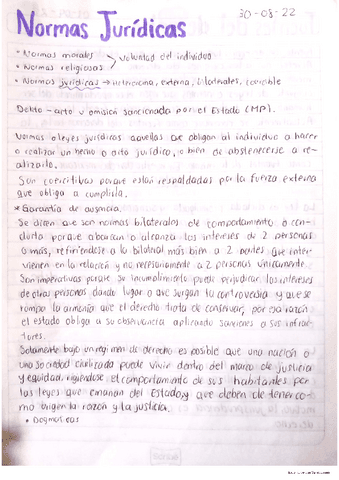 30-08-22
Normas Jurídicas
• Normas morales
• Normas religiosas
voluntad del individuo
• Normas jurídicas → heteronoma, externa, bilaterales, coercible
Delito - acto u omisión sancionada por el Estado (MP).
Normas o leyes jurídicas aquellas que obligan al individuo a hacer
o realizar un hecho o acto jurídico, o bien de abstenecerse a re-
alizarlo.
Son coercitibas porque están respaldadas por la fuerza externa
que obliga a cumplirla.
* Garantía de audiencia.
Se dicen que son normas bilaterales de comportamiento o con-
ducta porque abarcan o alcanza los intereses de 2 personas
o más, refiriéndose a lo bilateral más bien a 2 partes que inter-
vienen en la relación y no necesariamente a 2 personas únicamente.
Son imperativas porque su incumplimiento puede perjudicar los intereses
de otras personas dando lugar a que surgan la controversia y que se
rompa la armonía que el derecho trata de conservar, por esa razón
el estado obliga a su observancia aplicando sanciones a sus infrac-
tores.
Solamente bajo un regimen de derecho es posible que una nación o
una sociedad civilizada puede vivir dentro del marco de justicia
y equidad, rigiéndose el comportamiento de sus habitantes por
las leyes que emanan del Estado y que deben de tener co-
mo origen la razón y la justicia.
• Dogmaticas